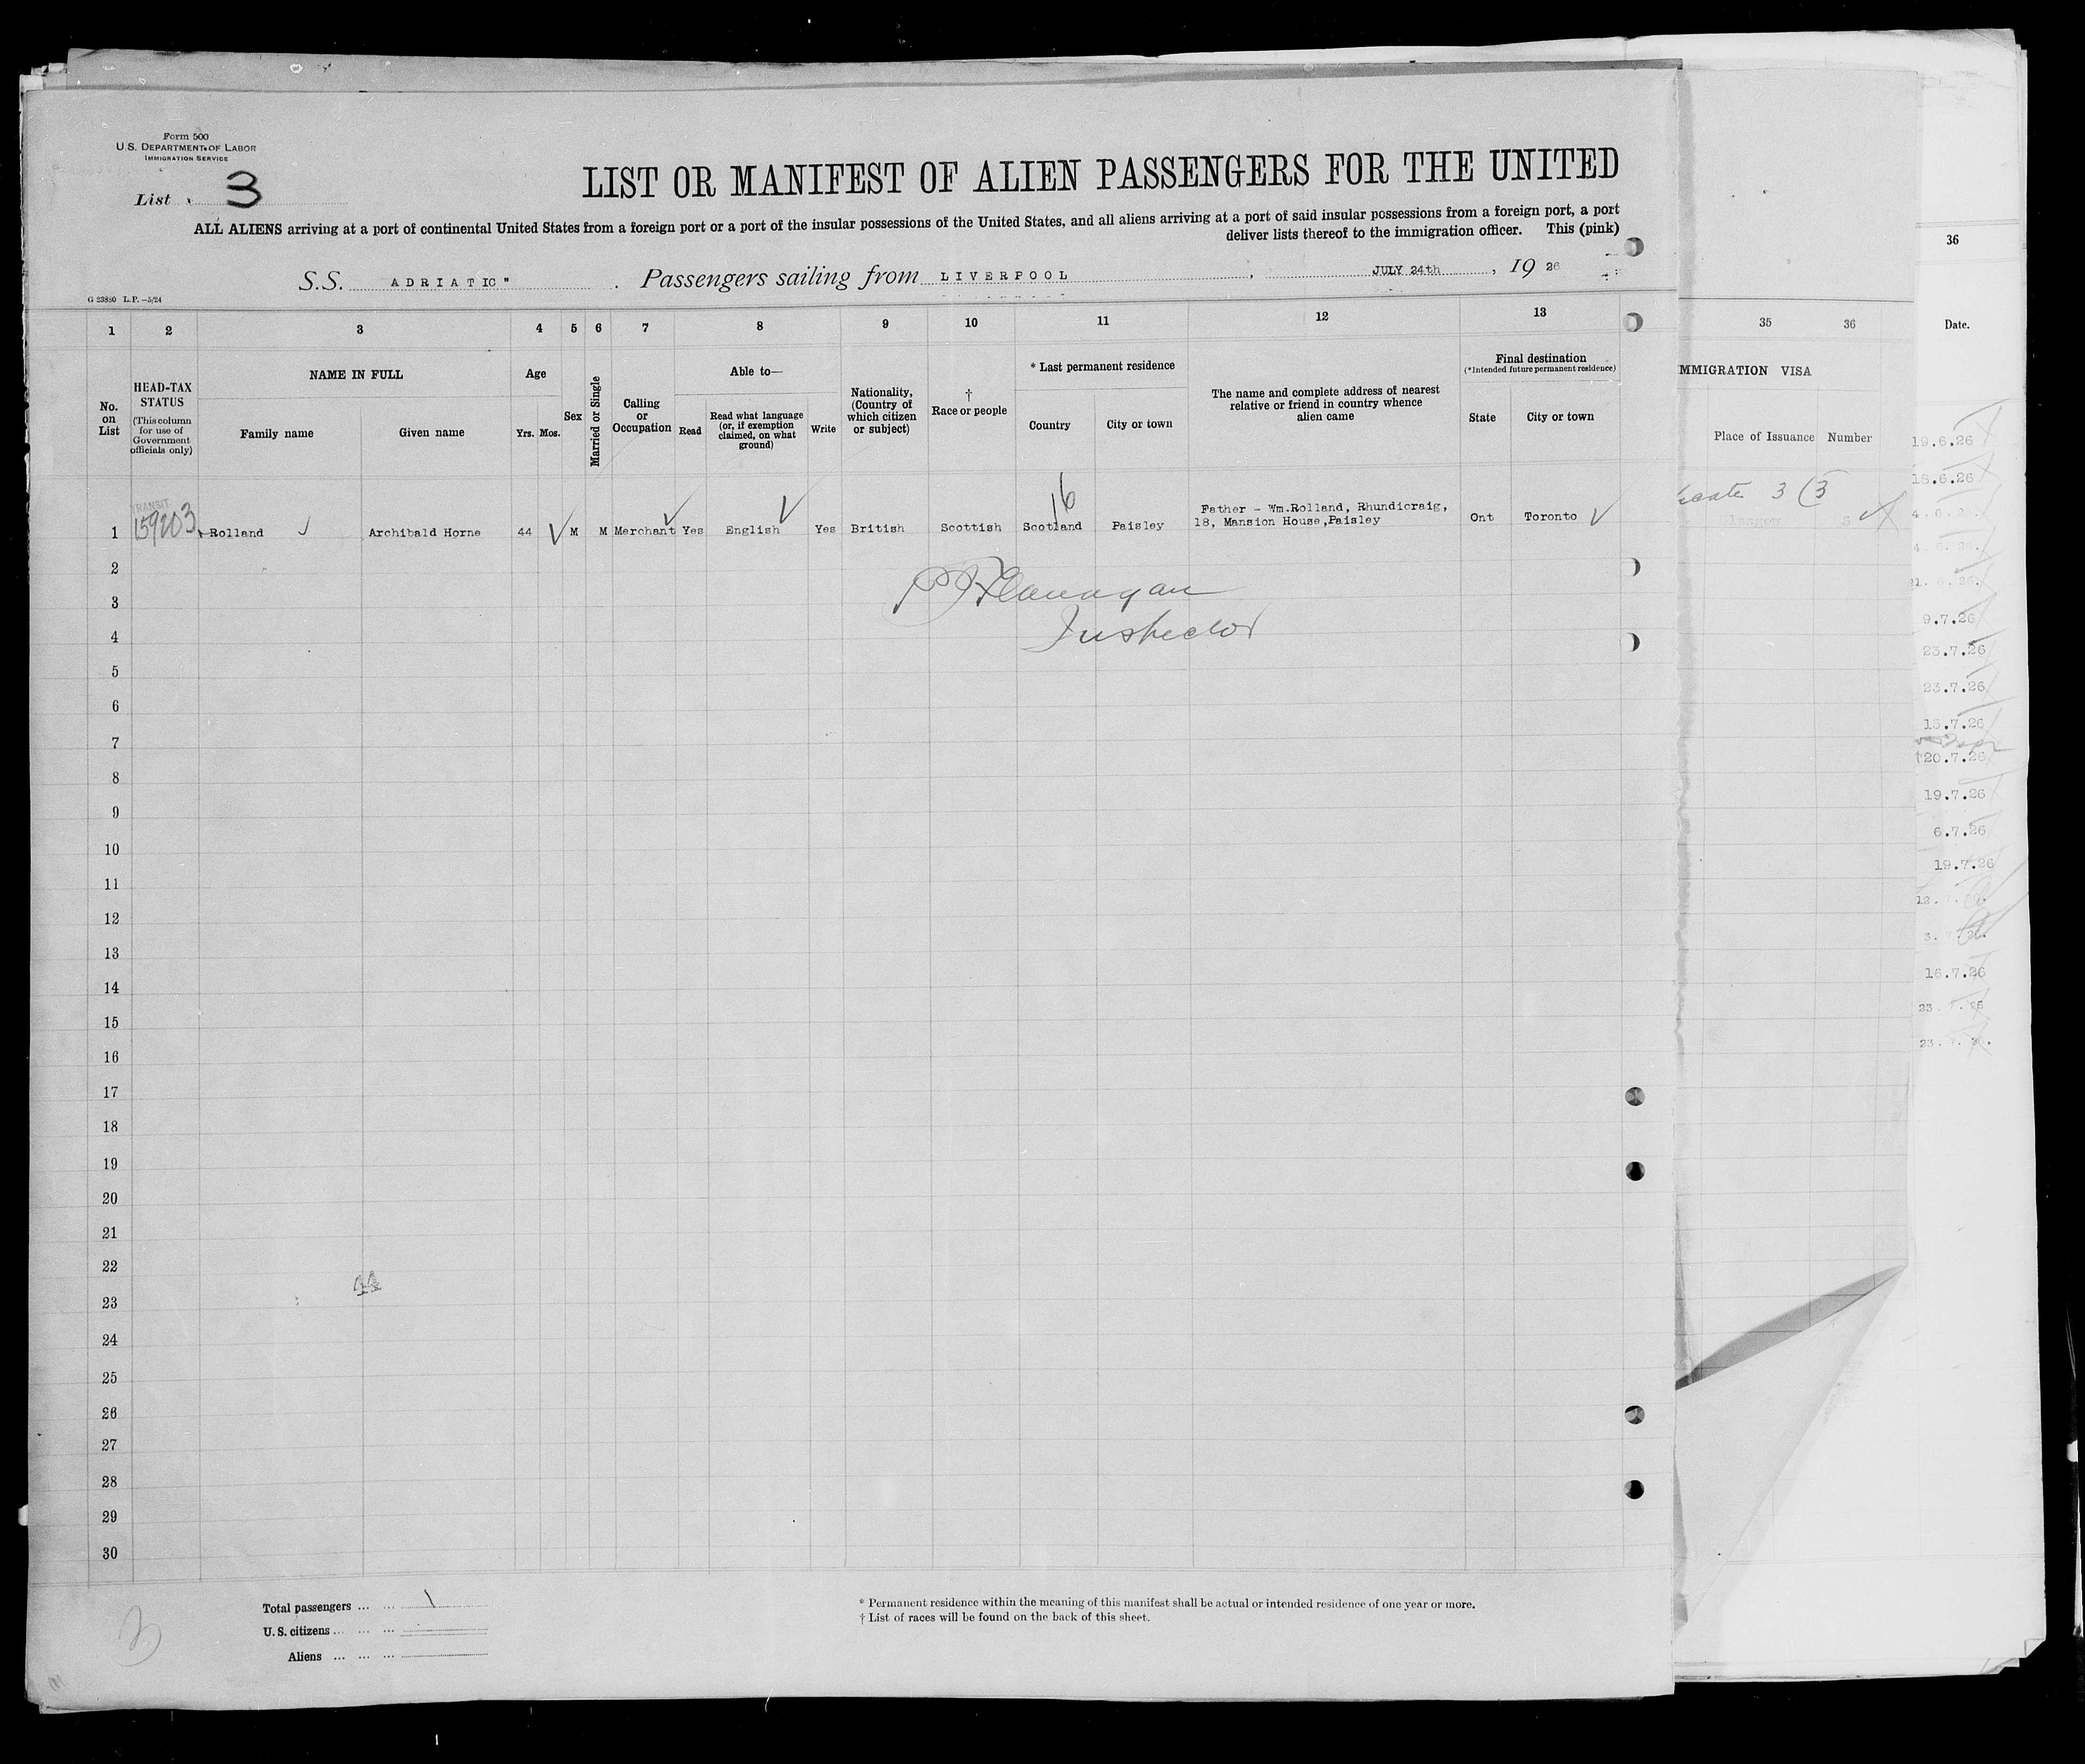 Form 500
U.S. DEPARTMENT OF LABOR
IMMIGRATION SERVICE
List 3
LIST OR MANIFEST OF ALIEN PASSENGERS FOR THE UNITED
ALL ALIENS arriving at a port of continental United States from a foreign port or a port of the insular possessions of the United States, and all aliens arriving at a port of said insular possessions from a foreign port, a port
deliver lists thereof to the immigration officer. This (pink)
S.S. ADRIATIC" . Passengers sailing from LIVERPOOL , JULY 24th , 19 26
G 23880 L.P.—5/24
1 2 3 4 5 6 7 8 9 10 11 12 13
No. on List
HEAD-TAX STATUS
(This column for use of Government officials only)
NAME IN FULL
Family name Given name
Age
Yrs. Mos.
Sex
Married or Single
Calling or Occupation
Able to—
Read
Read what language (or, if exemption claimed, on what ground)
Write
Nationality, (Country of which citizen or subject)
† Race or people
* Last permanent residence
Country City or town
The name and complete address of nearest relative or friend in country whence alien came
Final destination
(*Intended future permanent residence)
State City or town
TRANSIT
159203
1 Rolland Archibald Horne 44 M M Merchant Yes English Yes British Scottish Scotland Paisley Father - Wm.Rolland, Rhundicraig, 18, Mansion House,Paisley Ont Toronto
16
P J Flanagan
Inspector
2
3
4
5
6
7
8
9
10
11
12
13
14
15
16
17
18
19
20
21
22
23
24
25
26
27
28
29
30
44
Total passengers ... ... 1
U.S. citizens ... ... ...
Aliens ... ... ...
3
* Permanent residence within the meaning of this manifest shall be actual or intended residence of one year or more.
† List of races will be found on the back of this sheet.
35 36
MMIGRATION VISA
Place of Issuance Number
3 (3
Glasgow
36
Date.
19.6.26
18.6.26
9.7.26
23.7.26
23.7.26
15.7.26
20.7.26
19.7.26
6.7.26
19.7.26
16.7.26